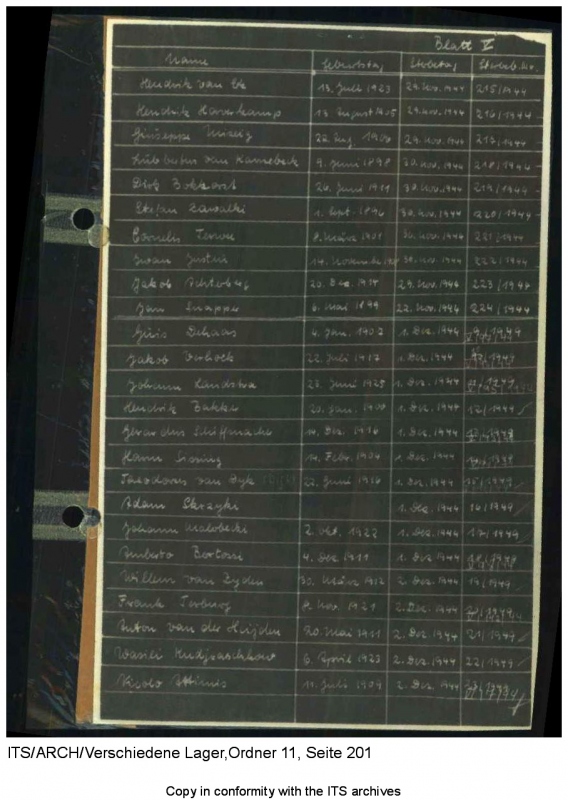 Blatt V
Name Geburtstag Sterbetag Sterbeb.Nr.
Hendrik van 13. Juli 1923 29. Nov. 1944 215/1944
Hendrik Haverkamp 13 August 1905 29. Nov. 1944 216/1944
Giuseppe 22 Aug. 1906 29. Nov. 1944
van 9. Juni 1898 30. Nov. 1944 218/1944
Dirk 26. Juni 1911 30. Nov. 1944 219/1944
Stefan Zawalki 1. Sept. 1896 30. Nov. 1944 220/1944
Cornelis 8. März 30. Nov. 1944 221/1944
Iwan 14. November 30. Nov. 1944 222/1944
Jakob Achterberg 20. Dez. 29. Nov. 1944 223/1944
Jan Snapper 6. Mai 1899 22. Nov. 1944 224/1944
Dehaas 4. Jan. 1907 1. Dez. 1944
Jakob Verhoek 22. Juli 1917 1. Dez. 1944
Johann Landstra 28. Juni 1925 1. Dez. 1944
Hendrik Bakker 20. Jan. 1. Dez. 1944 12/1949
Gerardus Schiffmacher 14. Dez. 1916 1. Dez. 1944
14. Febr. 1904 1. Dez. 1944
Theodorus van Dyk 22. Juni 1916 1. Dez. 1944 15/1949
Adam Skrzypi 1. Dez. 1944 16/1949
Johann Malobecki 2. Okt. 1922 1. Dez. 1944 17/1949
Umberto Bortoni 4. Dez. 1911 1. Dez. 1944 18/1949
Willem van Zyden 30. März 1912 2. Dez. 1944 19/1949
Frank Terburg 8. Nov. 1921 2. Dez. 1944 20/1949
Anton van der Heijden 20. Mai 1911 2. Dez. 1944 21/1949
Wasili 6. April 1923 2. Dez. 1944 22/1949
Nicolo 11. Juli 1909 2. Dez. 1944 23/1949
ITS/ARCH/Verschiedene Lager,Ordner 11, Seite 201
Copy in conformity with the ITS archives